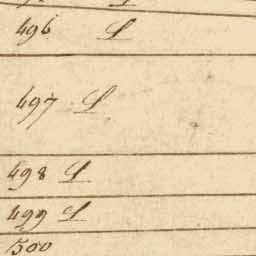 496 L
497 L
498 L
499 L
500